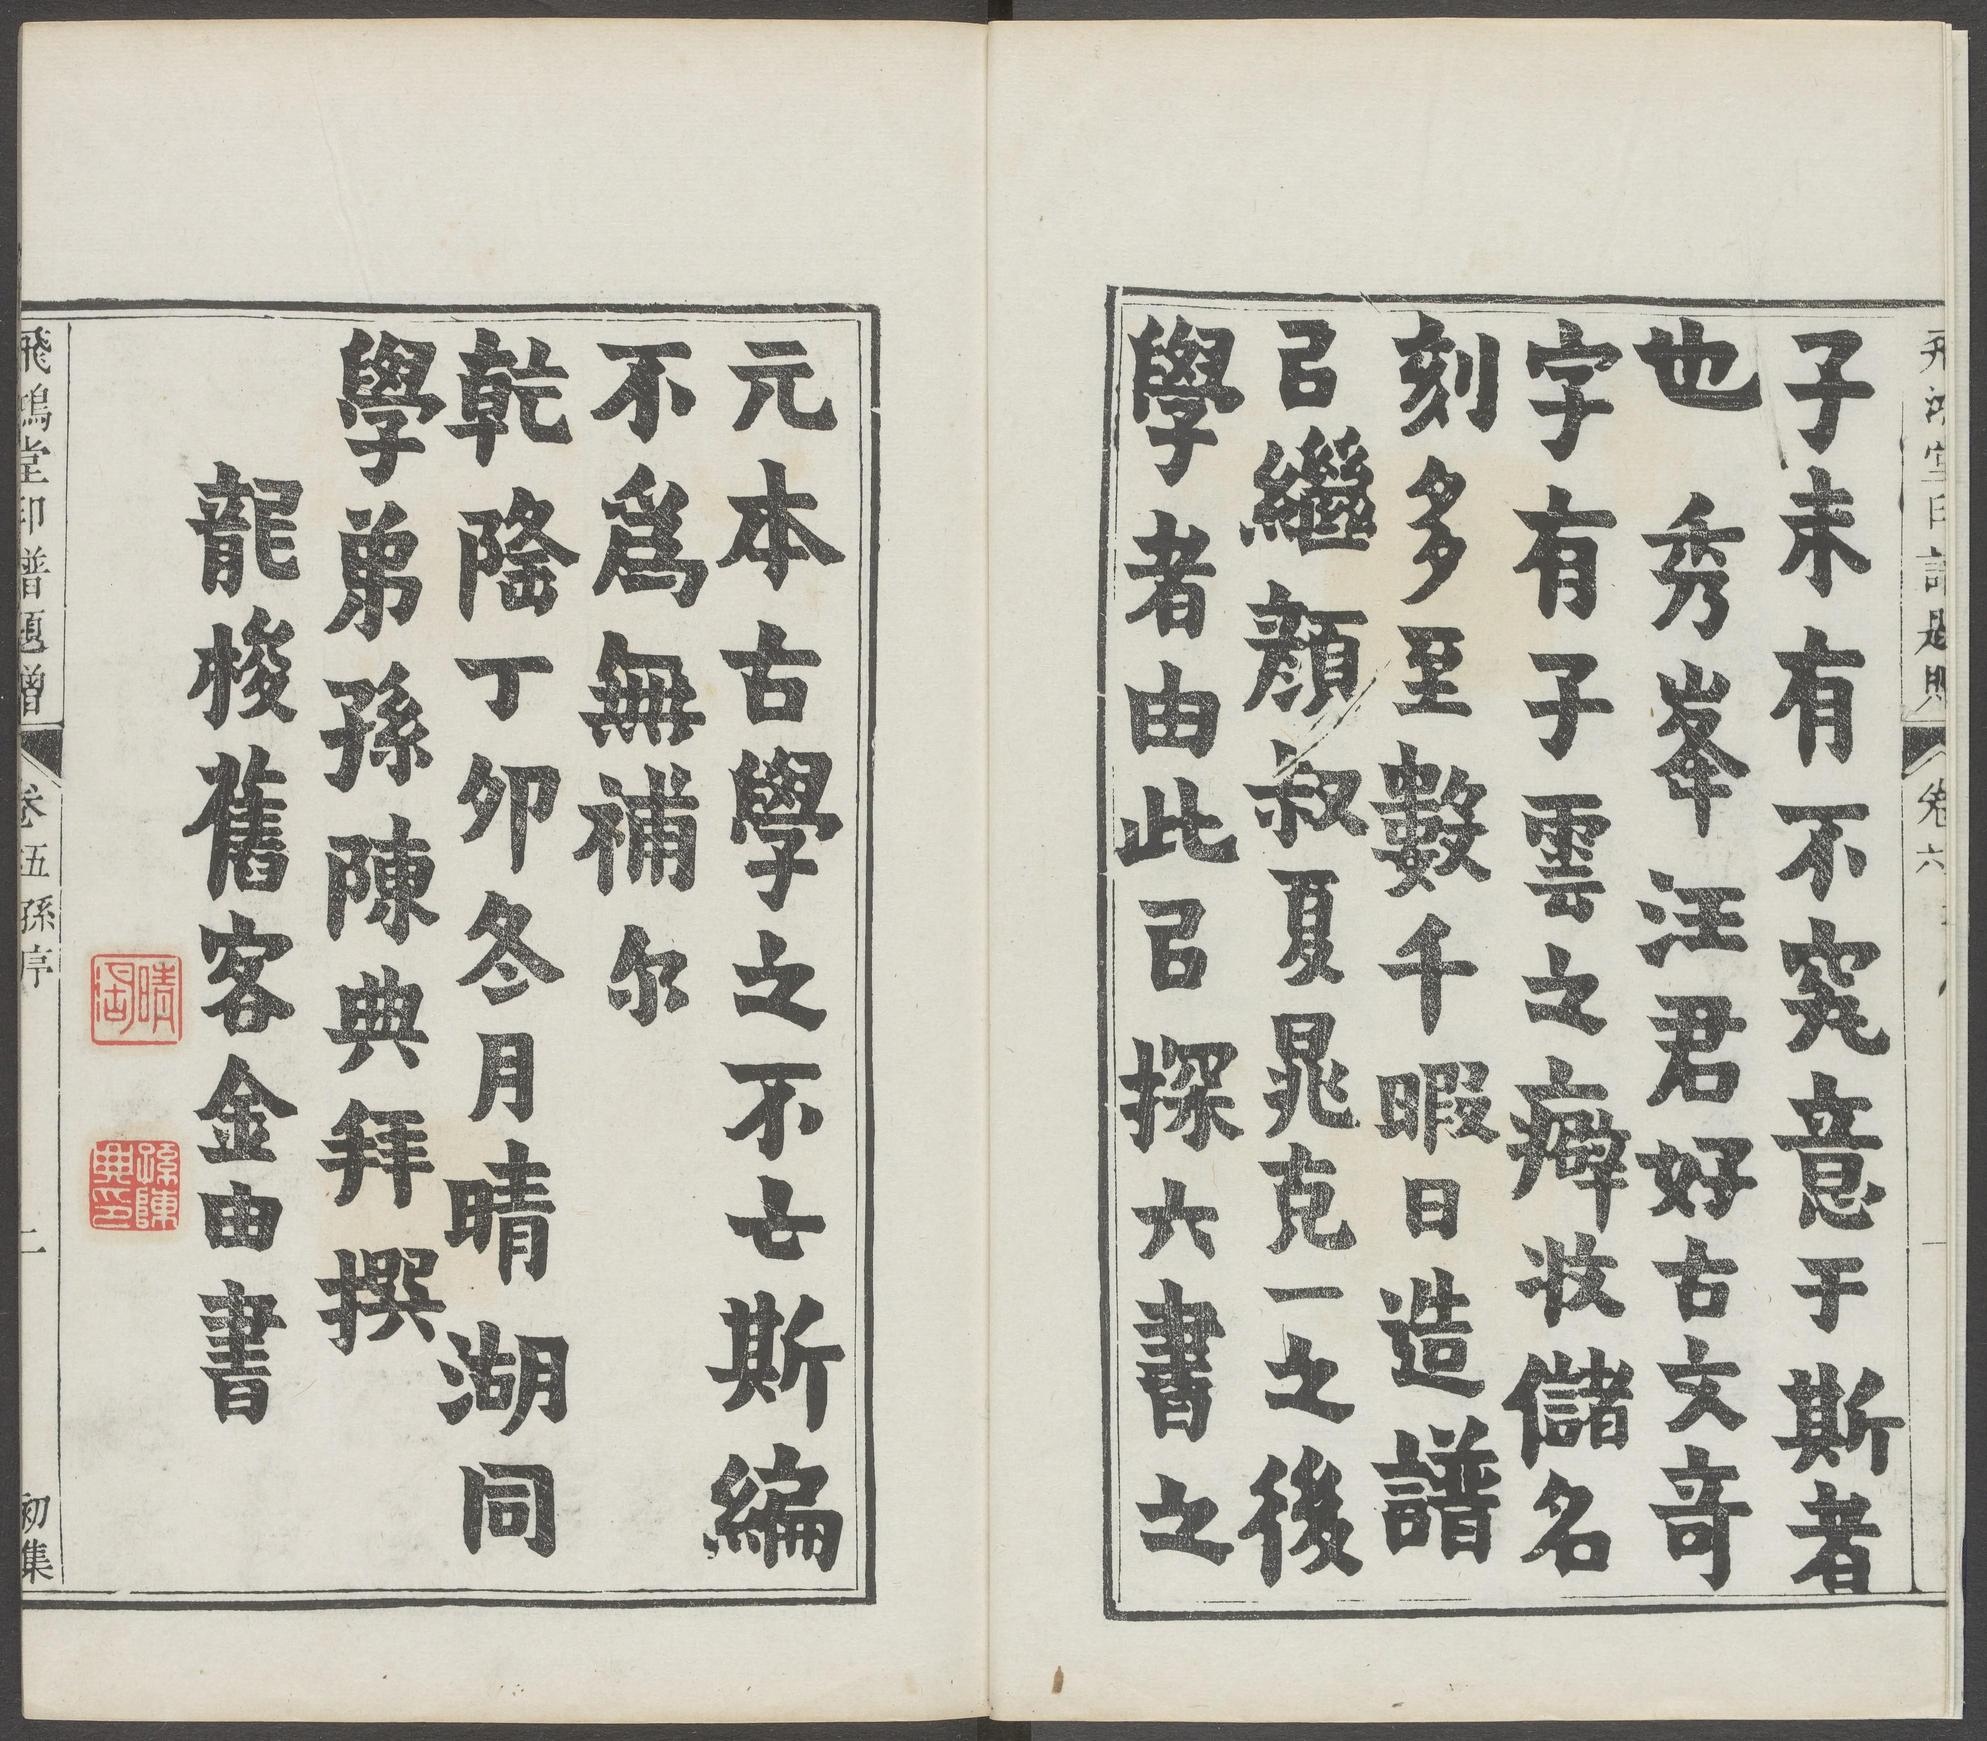 子未有不究意于斯者
也秀峯汪君好古文奇
字有子雲之癖收儲名
刻多至數千暇日造譜
㠯繼顏叔夏晁克一之後
學者由此㠯探六書之
元本古學之不亡斯編
不爲無補尒
乾隆丁卯冬月晴湖同
學弟孫陳典拜撰
龍梭舊客金由書
飛鴻堂印譜題贈
卷五孫序
二
初集
孫陳典印